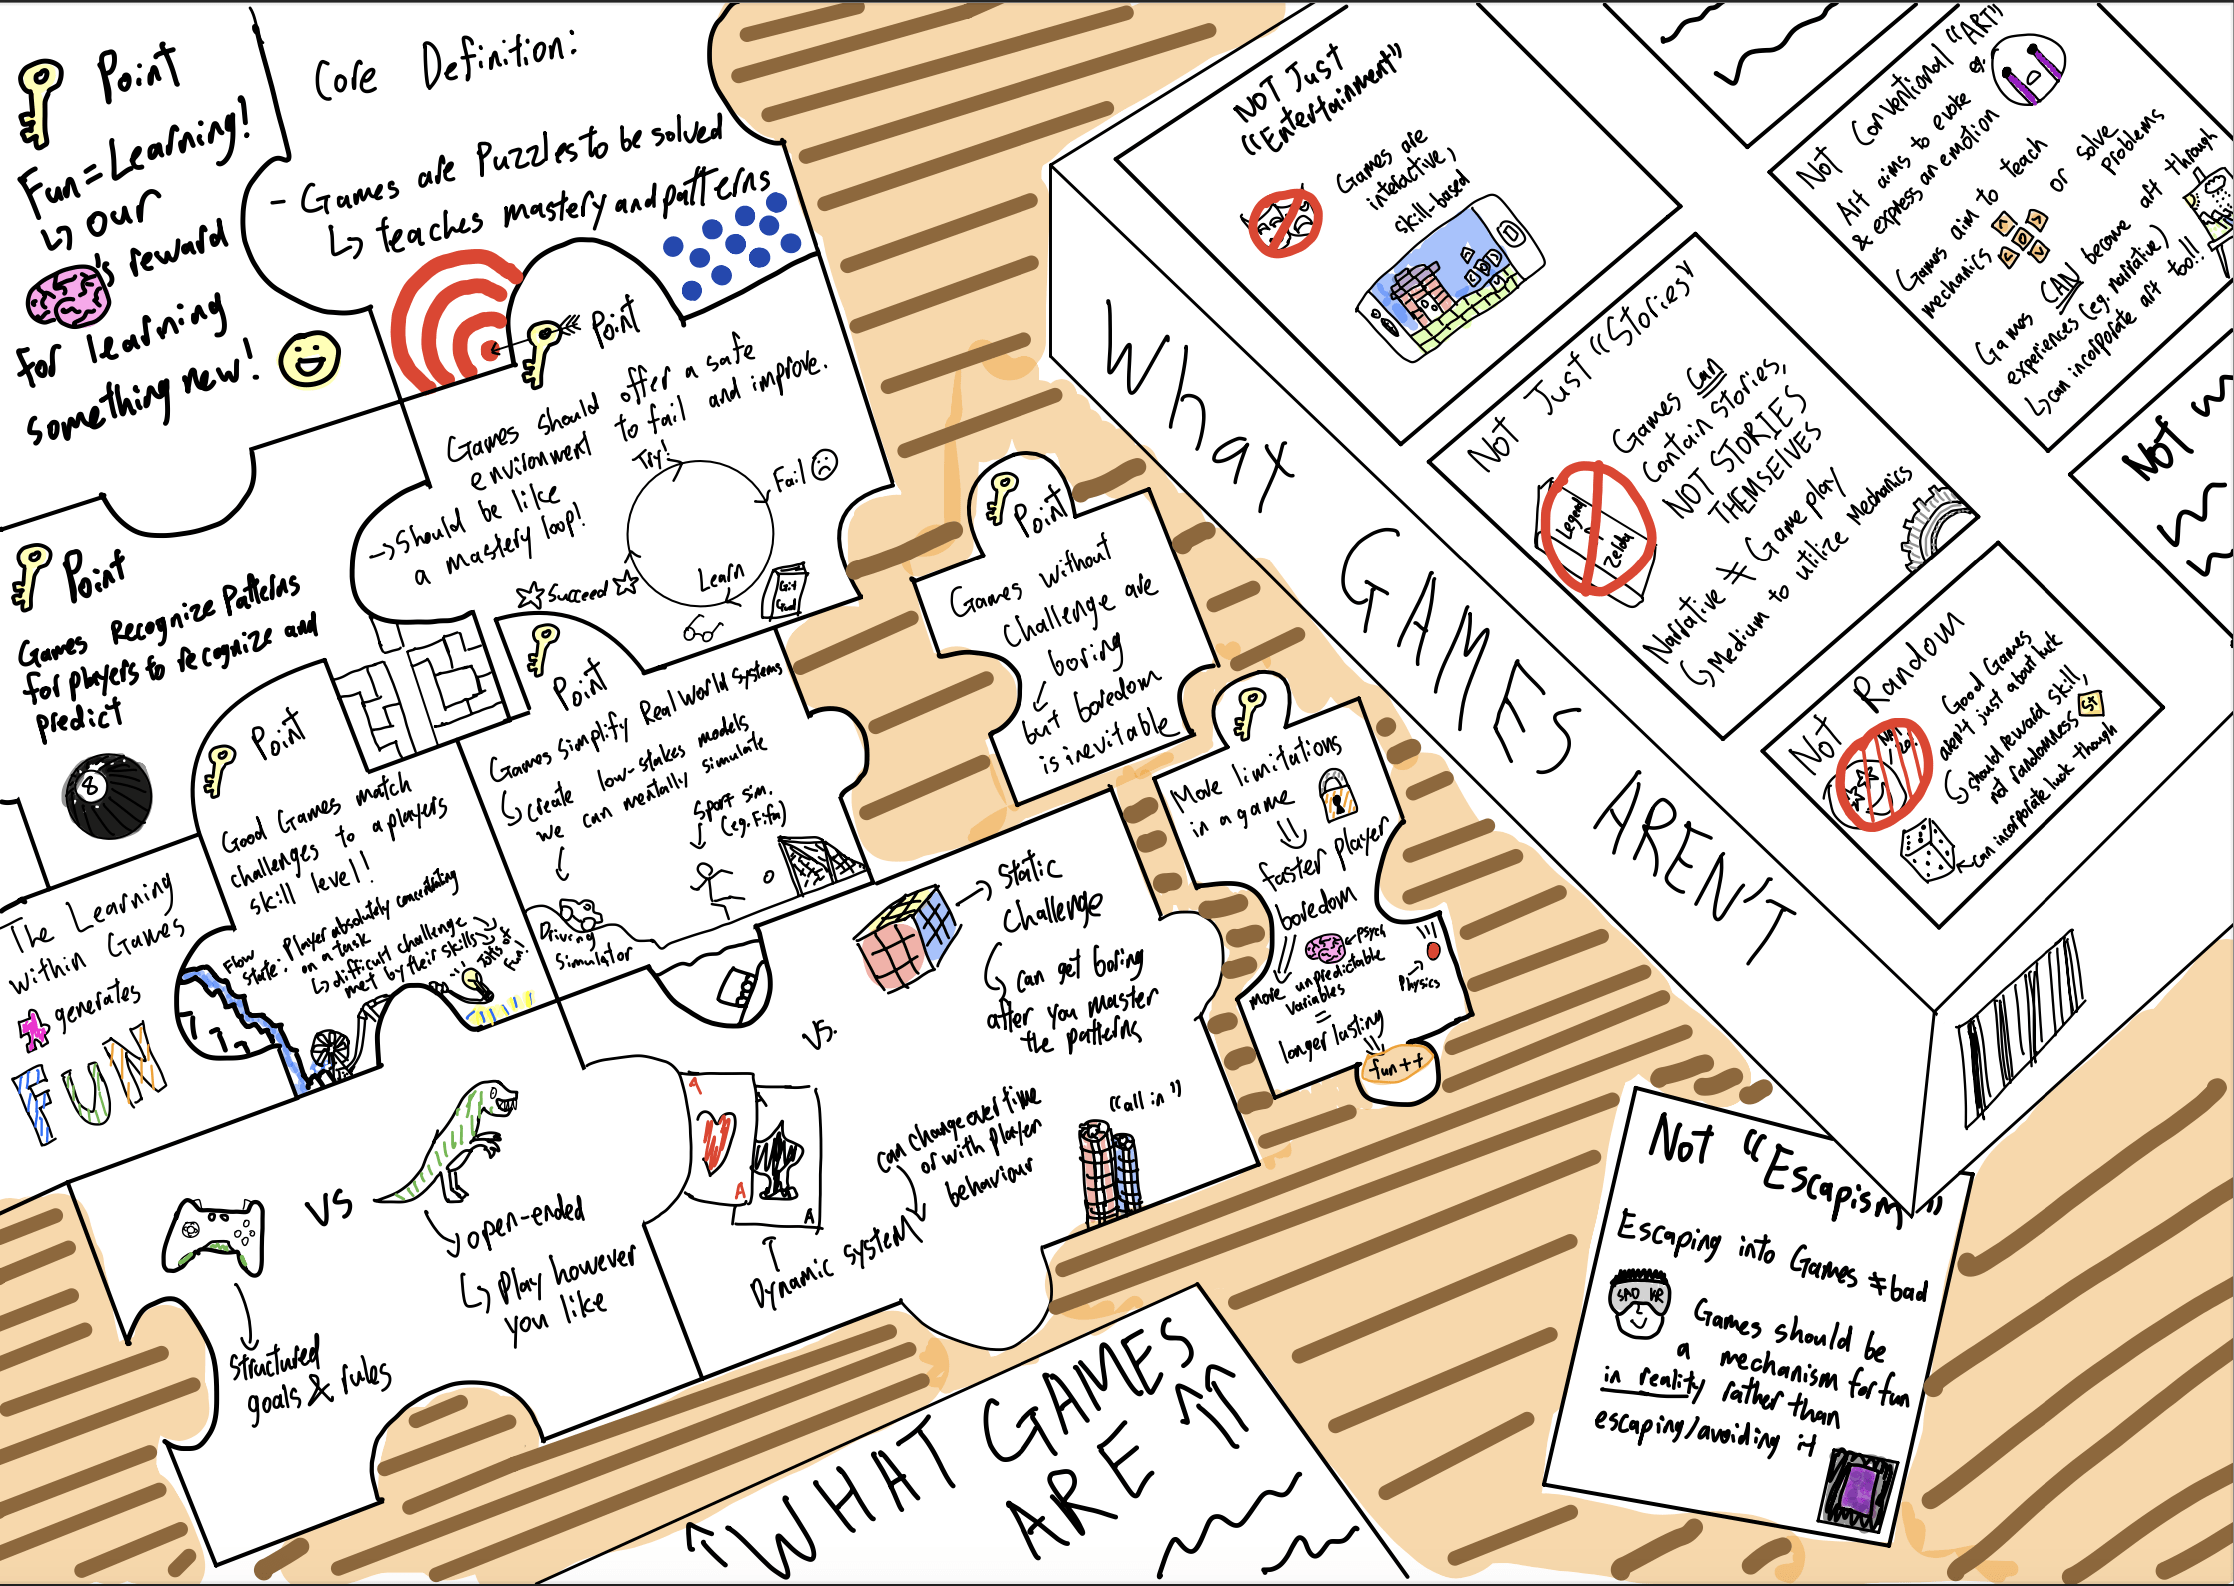 Point
Fun = Learning!
↳ our
's reward
for learning
something new!
Core Definition:
- Games are Puzzles to be solved
↳ teaches mastery and patterns
Point
Games should offer a safe
environment to fail and improve.
→ Should be like
a mastery loop!
Try!
Fail
Learn
Succeed
Git
Gud
Point
Games Recognize Patterns
for players to recognize and
predict
8
Point
Good Games match
challenges to a players
skill level!
Flow
State: Player absolutely concentrating
on a task
↳ difficult challenge
met by their skills
lots of
fun!
Point
Games Simplify Real World Systems
↳ create low-stakes models
we can mentally simulate
Sport sim.
(eg. Fifa)
Driving
Simulator
The Learning
within Games
generates
FUN
VS
structured
goals & rules
open-ended
↳ Play however
you like
Static
Challenge
can get boring
after you master
the patterns
VS.
A
A
A
A
can change over time
or with player
behaviour
Dynamic system
"all in"
Point
Games without
Challenge are
boring
but boredom
is inevitable
More limitations
in a game
faster player
boredom
psych
Physics
more unpredictable
variables
=
longer lasting
fun++
↑ WHAT GAMES
ARE ↑↑
What GAMES AREN'T
NOT Just
"Entertainment"
Games are
interactive,
skill-based
Not Just "Stories"
Games can
contain stories,
NOT STORIES
THEMSELVES
Legend
of
Zelda
Narrative ≠ Game play
↳ Medium to utilize Mechanics
Not Random
Good Games
aren't just about luck
↳ should reward skill,
not randomness
can incorporate luck though
Not Conventional "ART"
eg.
Art aims to evoke
& express an emotion
Games aim to teach
mechanics or solve
problems
Games CAN become art through
experiences (eg. narrative)
↳ can incorporate art too!!
Not
Not "Escapism"
Escaping into Games ≠ bad
SAO VR
Games should be
a mechanism for fun
in reality rather than
escaping/avoiding it